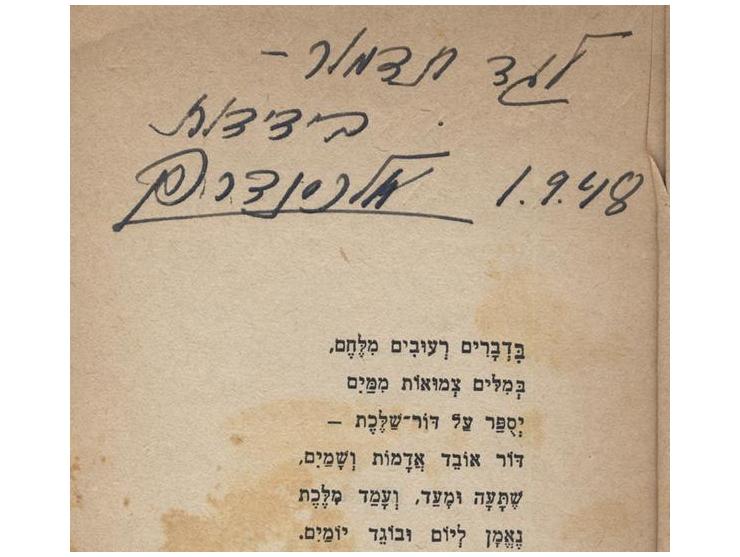 לגד תדמור –
בידידות
אלכסנדר פן 1.9.48
בִּדְבָרִים רְעוּבִים מִלֶּחֶם,
בְּמִלִּים צְמוּאוֹת מִמַּיִם
יְסֻפַּר עַל דּוֹר־שַׁלֶּכֶת –
דּוֹר אוֹבֵד אֲדָמוֹת וְשָׁמַיִם,
שֶׁתָּעָה וּמָעַד, וְעָמַד מִלֶּכֶת
נֶאֱמָן לְיוֹם וּבוֹגֵד יוֹמַיִם.